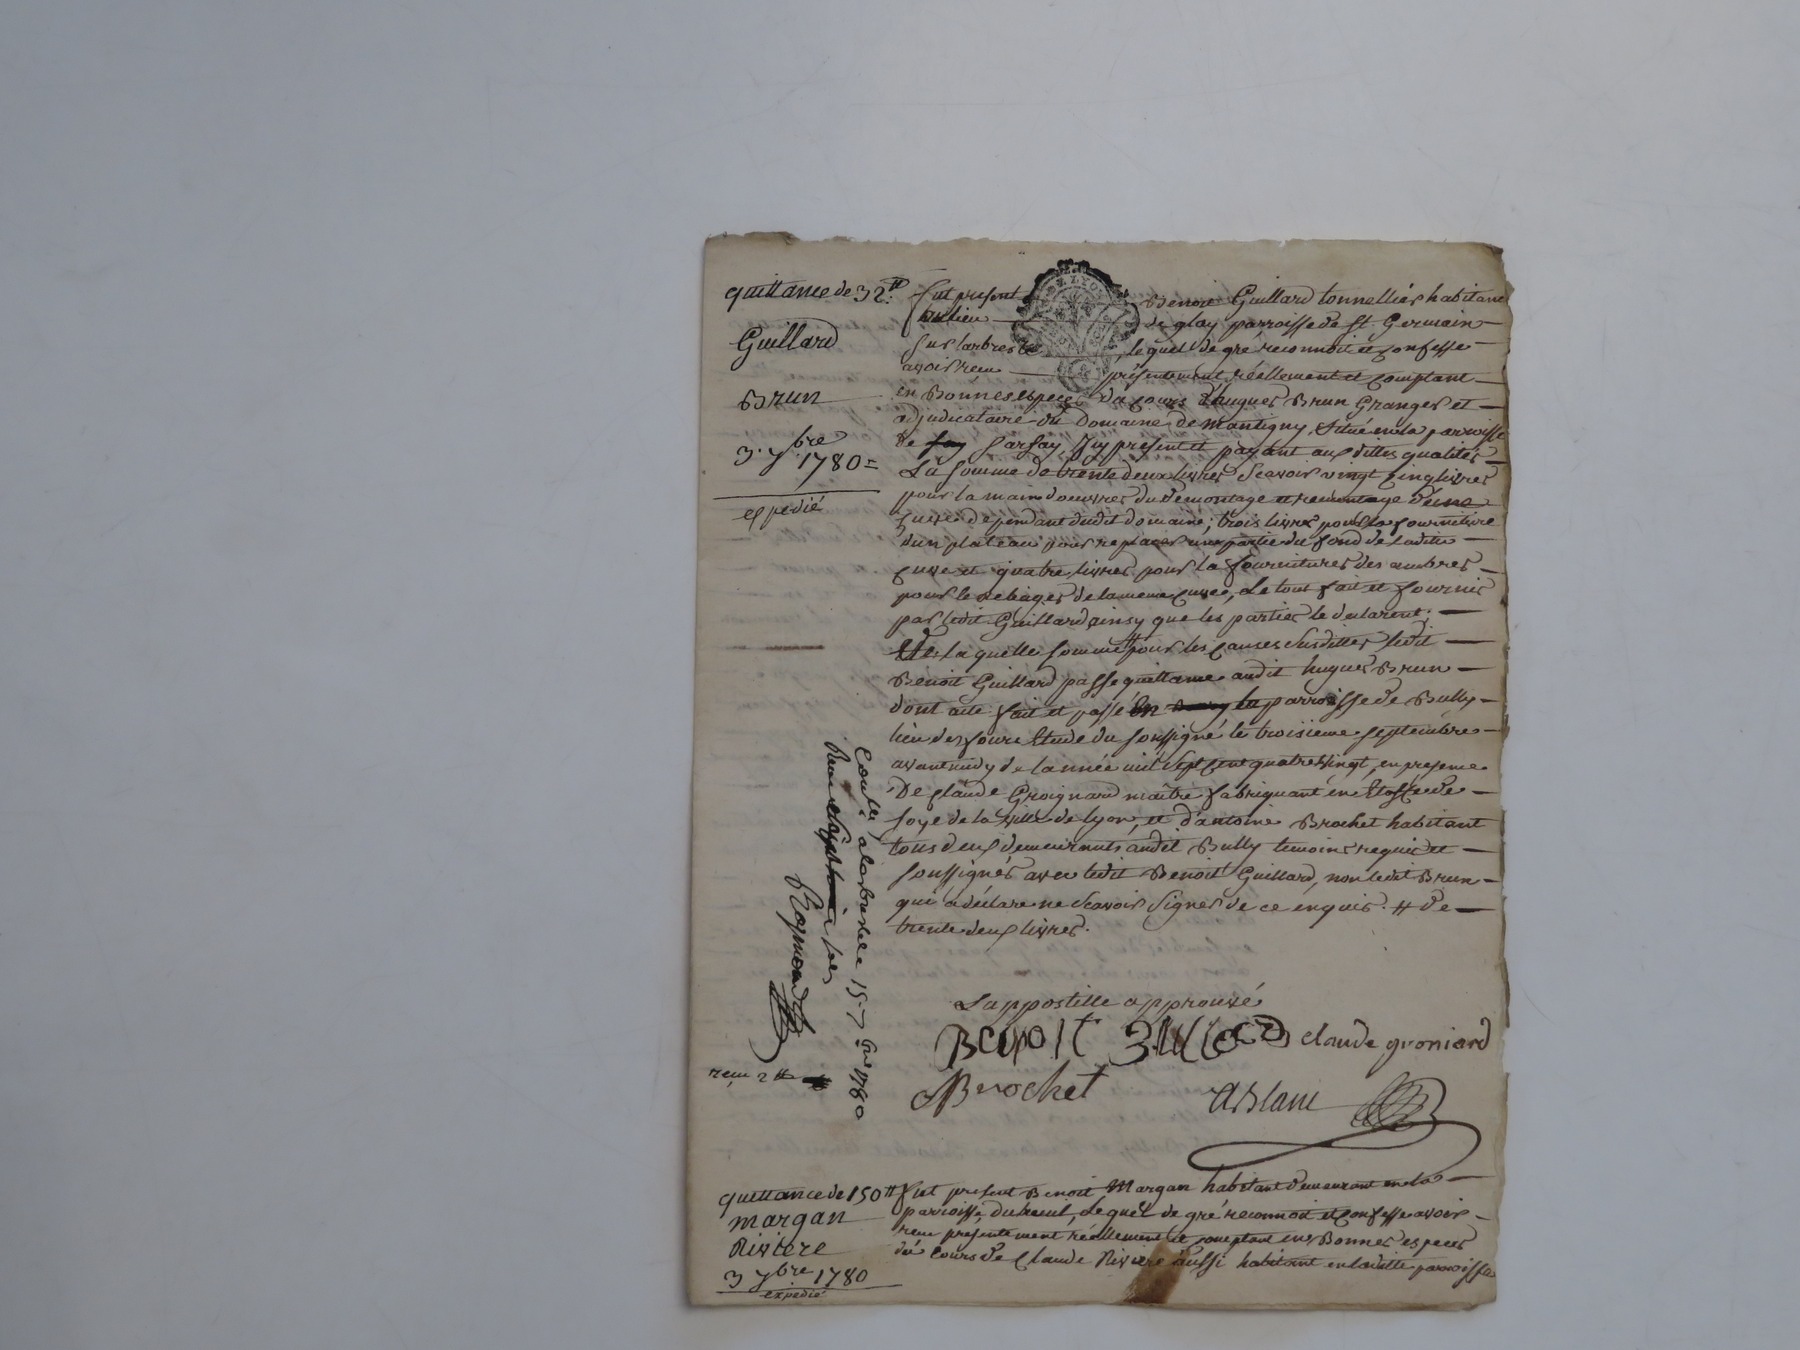 quittance de 32 ₶
Guillard
Brun
3. 7bre 1780 =
expedié
fut present Benoit Guillard tonnellier habitant
du lieu de glay parroisse de St. Germain
sur larbresle, lequel de gré reconnoit et confesse
avoir reçu présentement réellement et comptant
en Bonnes especes du cours d'hugues Brun Granger et
adjudicataire du Domaine de Montigny, situé en la parroisse
de Sarsay, Icy present et payant aux dittes qualités
La somme de trente deux livres Scavoir vingt cinq livres
pour la main doeuvres du démontage et remontage d'une
Cuve dependant dudit domaine; trois livres pour la fourniture
d'un plateau pour replacer une partie du fond de ladite
cuve et quatre livres pour la fournitures des
pour le de la meme cuvée, Le tout fait et fournis
par ledit Guillard ainsy que les parties le declarent;
laquelle somme # pour les causes susdittes ledit
Benoit Guillard passe quittance audit hugues Brun
dont acte fait et passé parroisse de Bully
lieu des fours Etude du soussigné le troisieme septembre
avant midy de lannée mil sept cent quatre vingt, en presence
De Claude Groignard maître fabriquant en Etoffe de
soye de la ville de lyon, et d'antoine Brochet habitant
tous deux demeurants audit Bully temoins requis et
soussignés avec ledit Benoit Guillard, non ledit Brun
qui a déclare ne scavoir signer de ce enquis. # De
trente deux livres.
Lappostille approuvé
Benoit claude groniard
Brochet ABlanc
Conlé alarbresle 15 7bre 1780
Reçu sols
Raymond
reçu 2 ₶
quittance de 150 ₶
margan
Riviere
3 7bre 1780
expedié
fut present Benoit Margan habitant demeurant en la
parroisse du breuil, Lequel de gré reconnoit et confesse avoir
reçu présentement réellement et comptant en Bonnes especes
du Cours de Claude Riviere aussi habitant en laditte parroisse